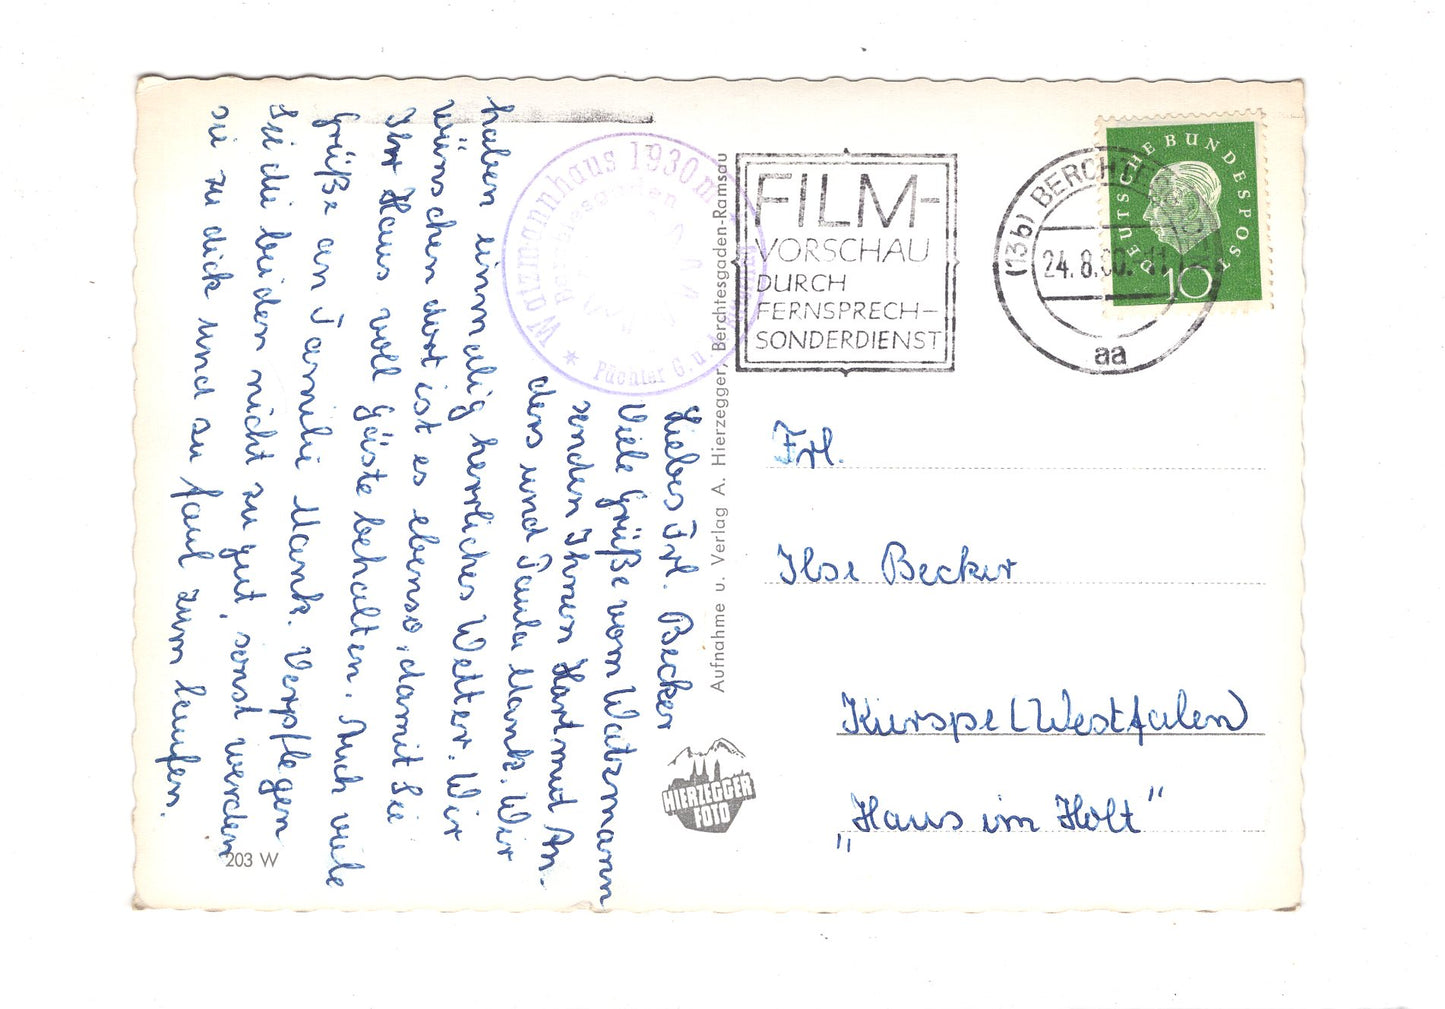 Liebes Frl. Becker
Viele Grüße vom Watzmann
senden Ihnen Hartmut An-
ders und Paula Mank. Wir
haben einmalig herrliches Wetter. Wir
wünschen dort ist es ebenso, damit Sie
Ihr Haus voll Gäste behalten. Auch viele
Grüße an Familie Mank. Verpflegen
Sie die beiden nicht zu gut, sonst werden
sie zu dick und zu faul zum laufen.
Watzmannhaus 1930 m
Berchtesgaden
Pächter G. u. A.
Aufnahme u. Verlag A. Hierzegger, Berchtesgaden-Ramsau
HIERZEGGER
FOTO
203 W
FILM-
VORSCHAU
DURCH
FERNSPRECH-
SONDERDIENST
(13b) BERCHTESGADEN
24.8.60.-11
aa
DEUTSCHE BUNDESPOST
10
Frl.
Ilse Becker
Kierspe (Westfalen)
„Haus im Holt"